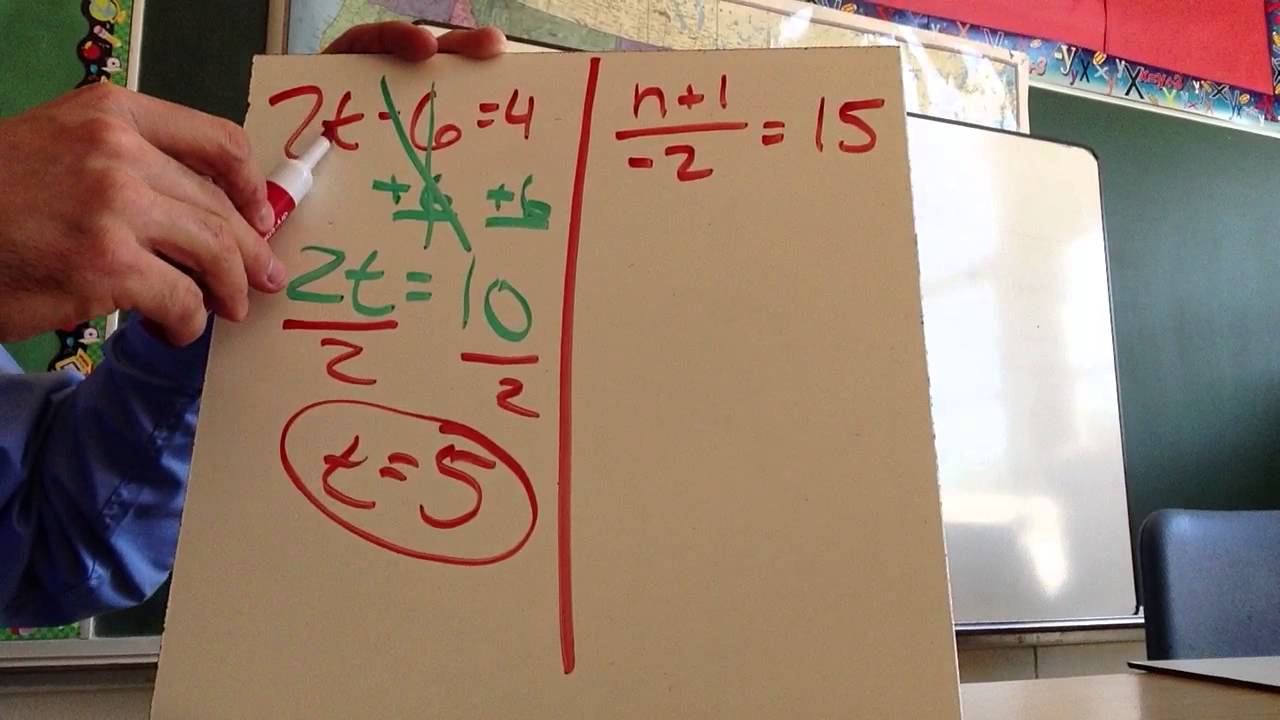 2t - 6 = 4
+6 +6
2t = 10
2 2
t = 5
n+1
-2
= 15